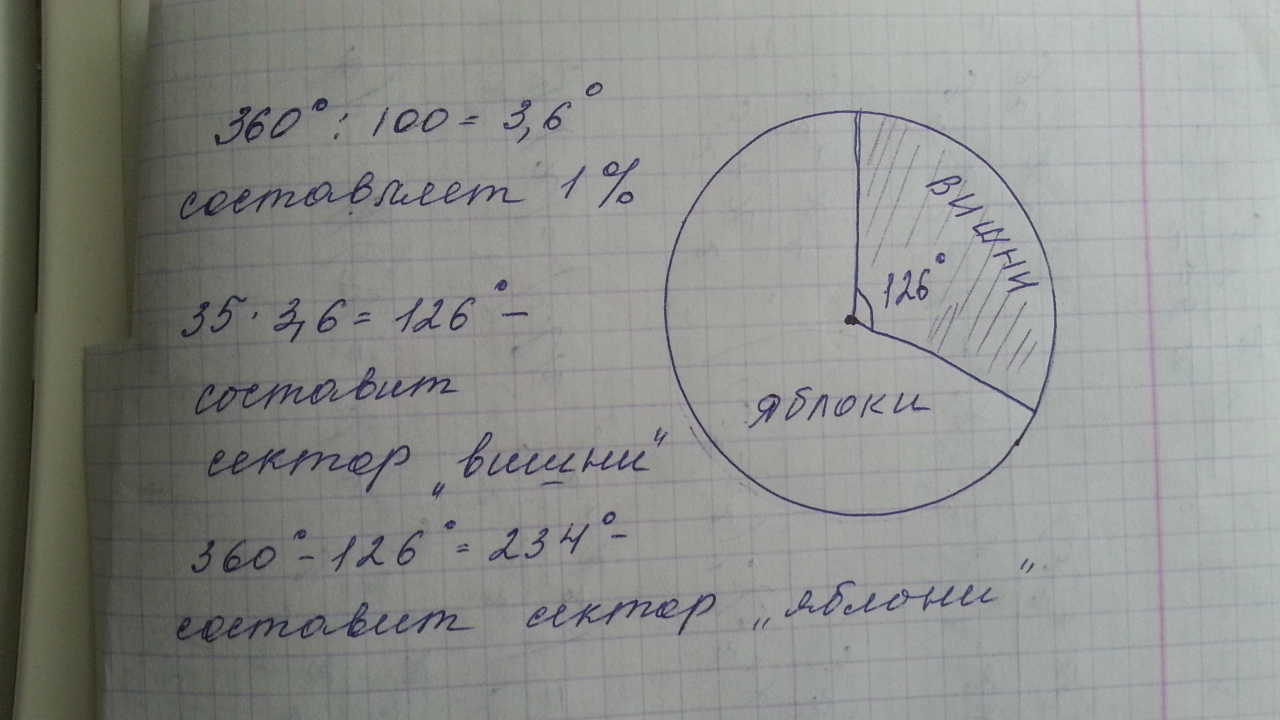 360° : 100 = 3,6°
составляет 1%
35 · 3,6 = 126° –
составит
сектор „вишни“
360° – 126° = 234° –
составит сектор „яблони“
вишни
126°
яблоки